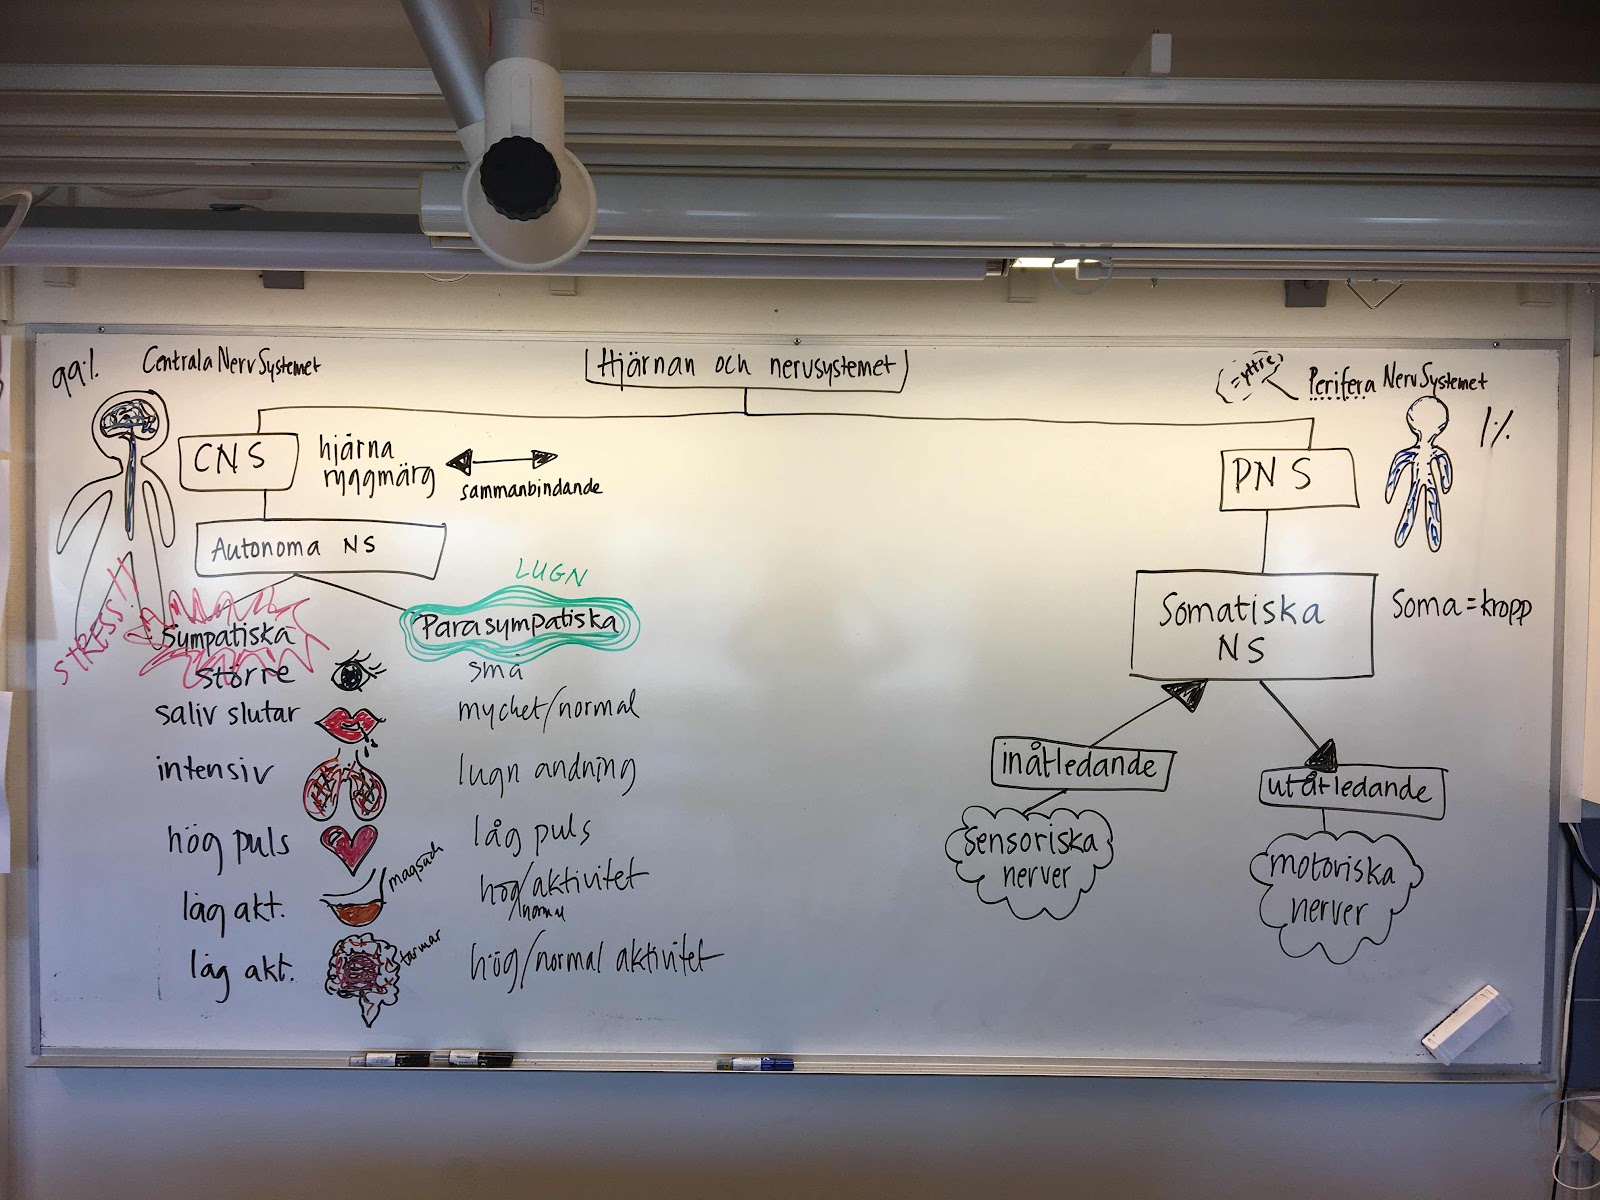 99%
Centrala NervSystemet
Hjärnan och nervsystemet
=yttre
Perifera NervSystemet
1%
CNS
hjärna
ryggmärg
sammanbindande
PNS
Autonoma NS
STRESS!!
LUGN
Sympatiska
Parasympatiska
Somatiska
NS
Soma=kropp
större
små
saliv slutar
mycket/normal
intensiv
lugn andning
inåtledande
utåtledande
hög puls
låg puls
sensoriska
nerver
motoriska
nerver
låg akt.
magsäck
hög/aktivitet
/normal
låg akt.
tarmar
hög/normal aktivitet